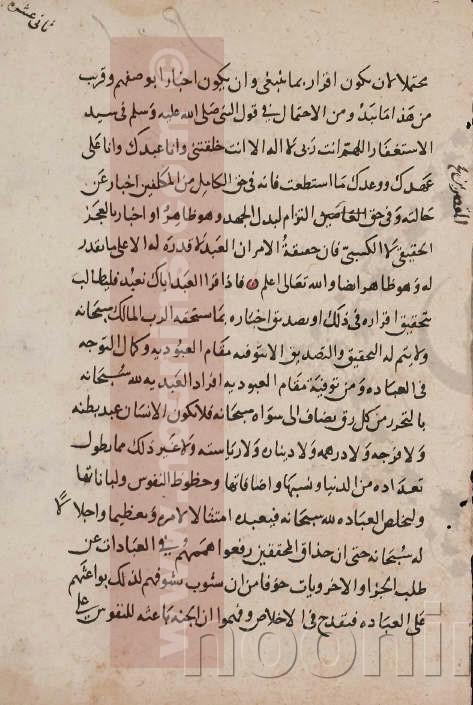 ثانى عشر
محتملا لان يكون اقرارا بما ينبغى وان يكون اخبارا بوصفهم وقريب
من هذا ما يبدو من الاحتمال فى قول النبى صلى الله عليه وسلم فى سيد
الاستغفار اللهم انت ربى لا اله الا انت خلقتنى وانا عبدك وانا على
عهدك ووعدك ما استطعت فانه فى حق الكامل من المكلفين اخبار عن
حالته وفى حق القاصر التزام لبذل الجهد وهو ظاهر او اخبار بالعجز
الحقيقى لا الكسبى فان حقيقة الامر ان العبد لا قدرة له الا على ما يقدر
له وهو ظاهر ايضا والله تعالى اعلم فاذا قرا العبد اياك نعبد فليطالب
بتحقيق اقراره فى ذلك او بصدق اخباره بما يستحقه الرب المالك سبحانه
ولا يتم له التحقيق والتصديق الا بتوفية مقام العبودية وكمال التوجه
فى العبادة ومن توفية مقام العبودية افراد العبدية لله سبحانه
بالتحرر من كل رق يضاف الى سواه سبحانه فلا يكون الانسان عبد بطنه
ولا فرجه ولا درهمه ولا ديناره ولا رياسته ولا غير ذلك مما يطول
تعداده من الدنيا ونسبها واضافاتها وحظوظ النفوس ولباناتها
وليخلص العبادة لله سبحانه فيعبده امتثالا لامره وتعظيما واجلالا
له سبحانه حتى ان حذاق المحققين رفعوا هممهم فى العبادات عن
طلب الجزا والاخرويات خوفا من ان يشوب تشوفهم لذلك بواعثهم
على العبادة فيقدح فى الاخلاص وفهموا ان الجنة باعثة للنفوس على
noonin